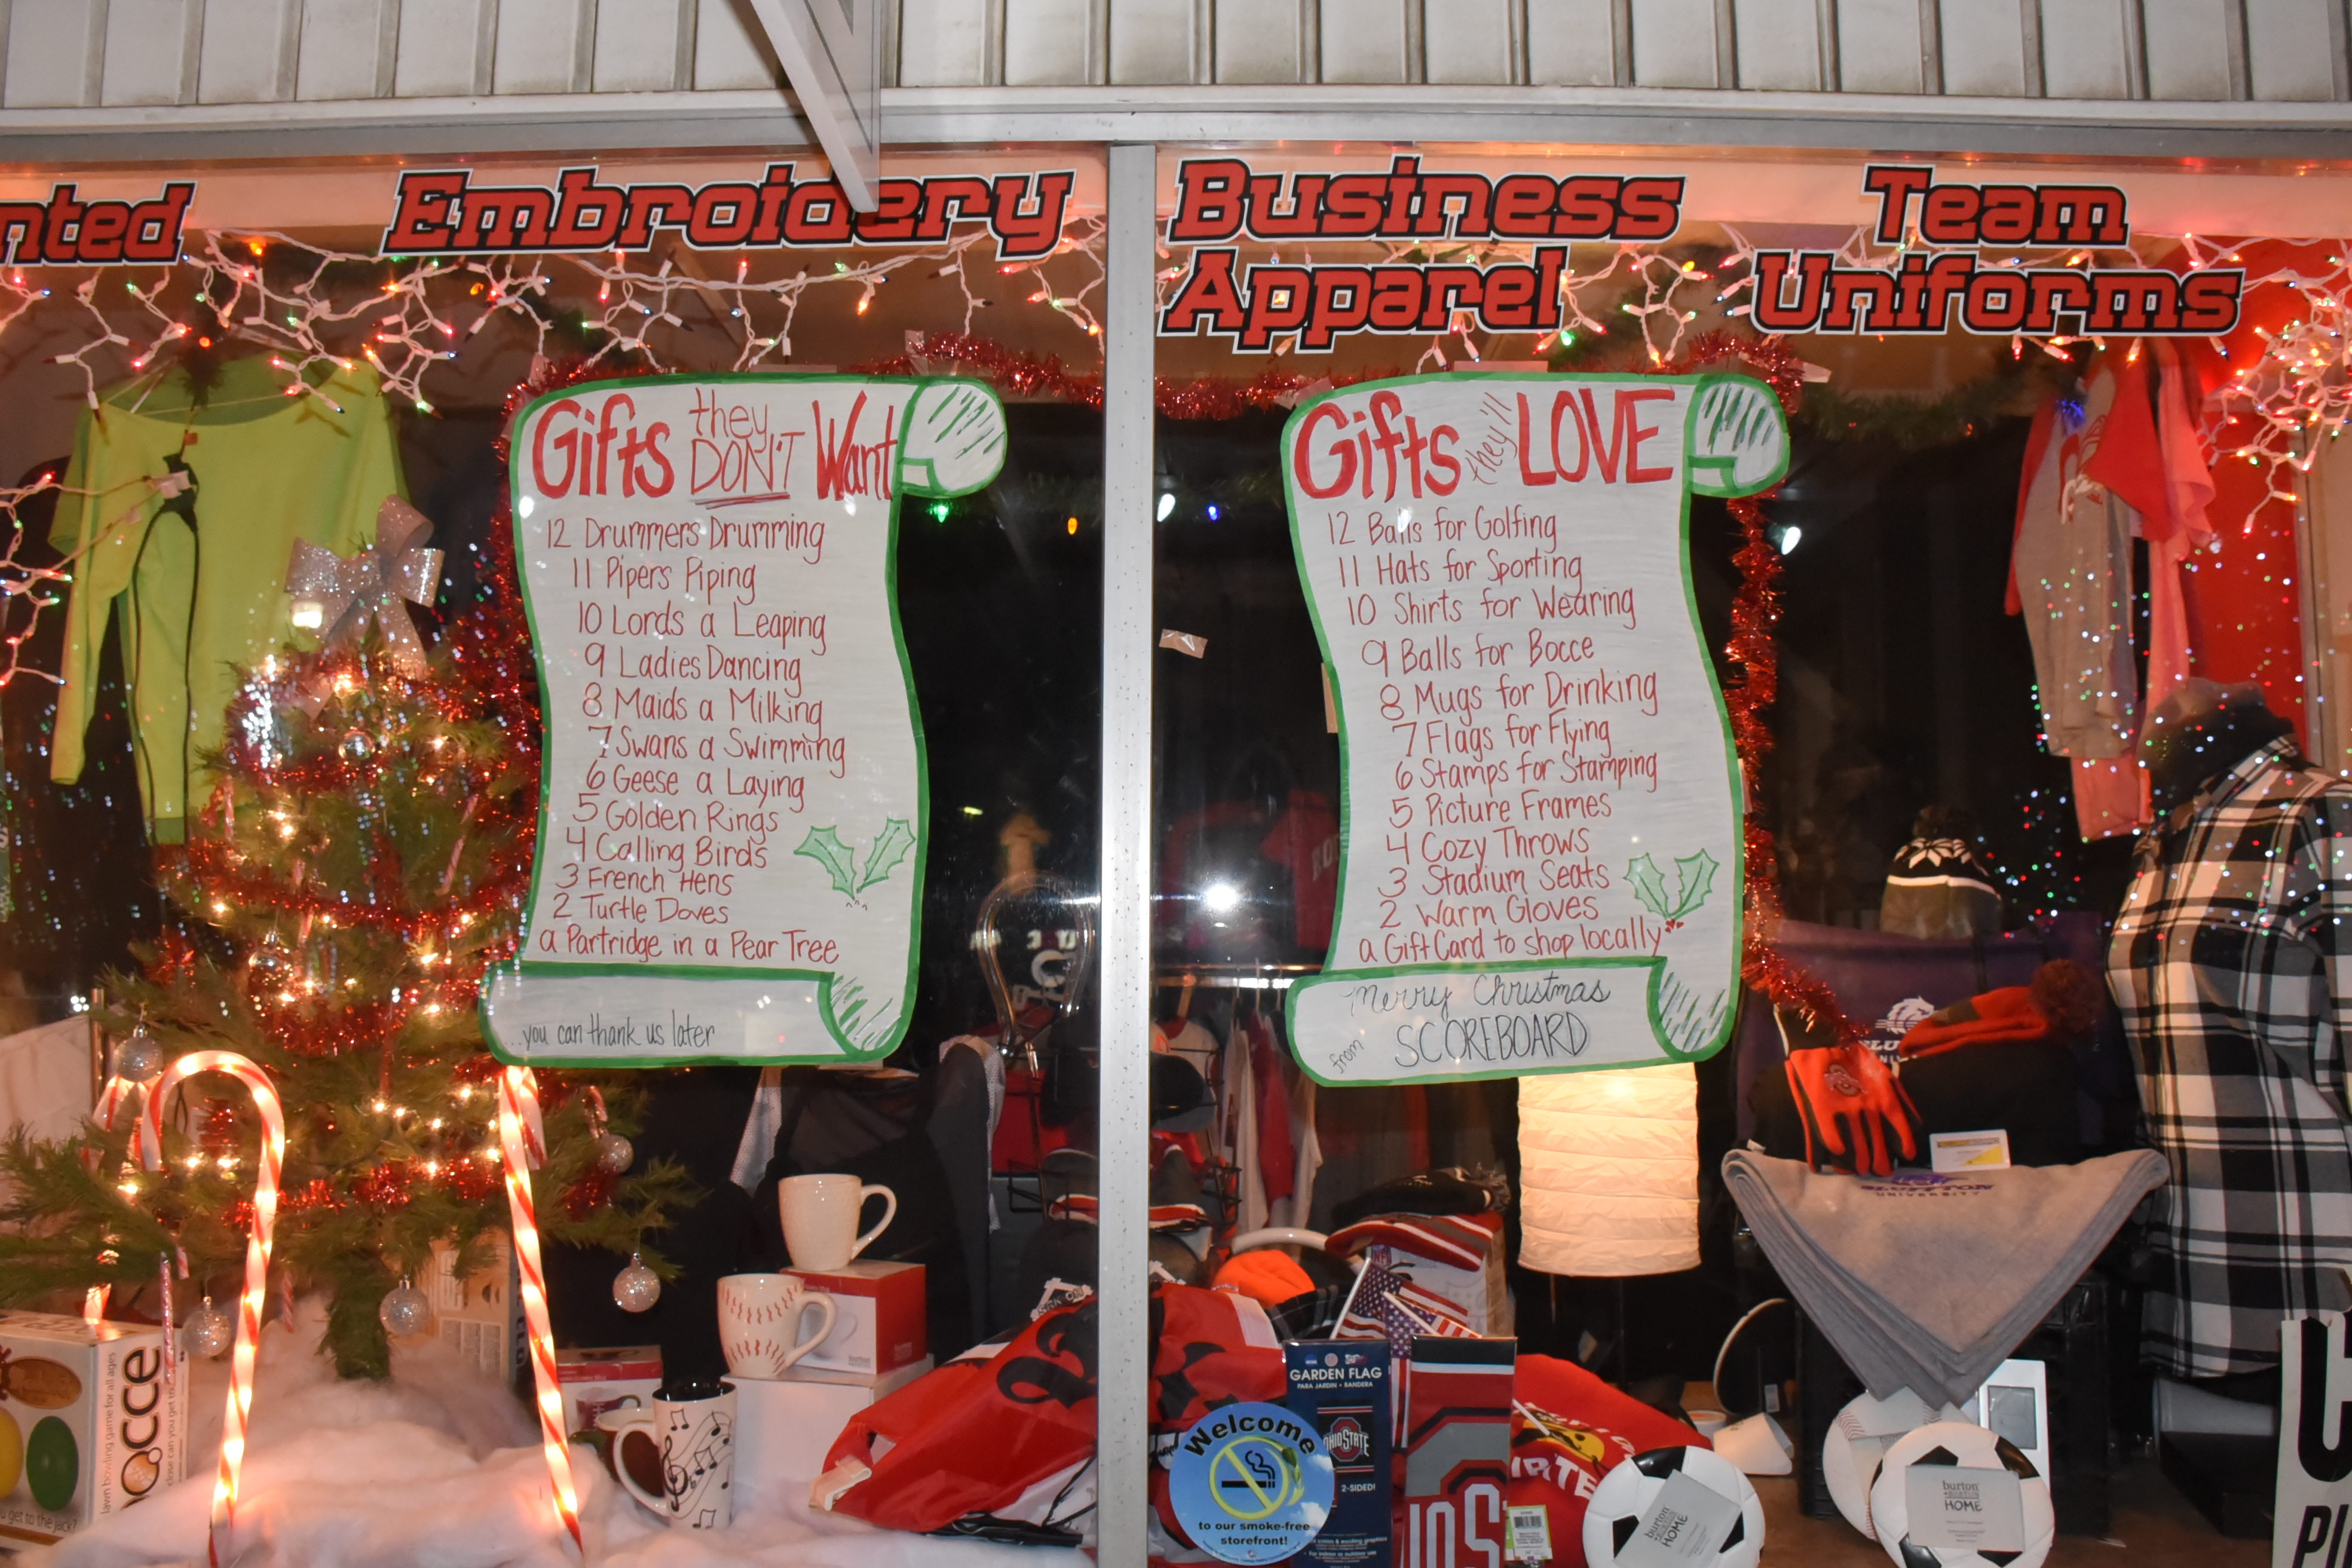 nted
Embroidery
Business
Apparel
Team
Uniforms
Gifts they DON'T Want
12 Drummers Drumming
11 Pipers Piping
10 Lords a Leaping
9 Ladies Dancing
8 Maids a Milking
7 Swans a Swimming
6 Geese a Laying
5 Golden Rings
4 Calling Birds
3 French Hens
2 Turtle Doves
a Partridge in a Pear Tree
...you can thank us later
Gifts they'll LOVE
12 Balls for Golfing
11 Hats for Sporting
10 Shirts for Wearing
9 Balls for Bocce
8 Mugs for Drinking
7 Flags for Flying
6 Stamps for Stamping
5 Picture Frames
4 Cozy Throws
3 Stadium Seats
2 Warm Gloves
a Gift Card to shop locally
Merry Christmas
from SCOREBOARD
UNIVERSITY
GARDEN FLAG
PARA JARDIN • BANDERA
OHIO STATE
2-SIDED!
Welcome
to our smoke-free
storefront!
occe
lawn bowling game for all ages
burton
HOME
burton
HOME